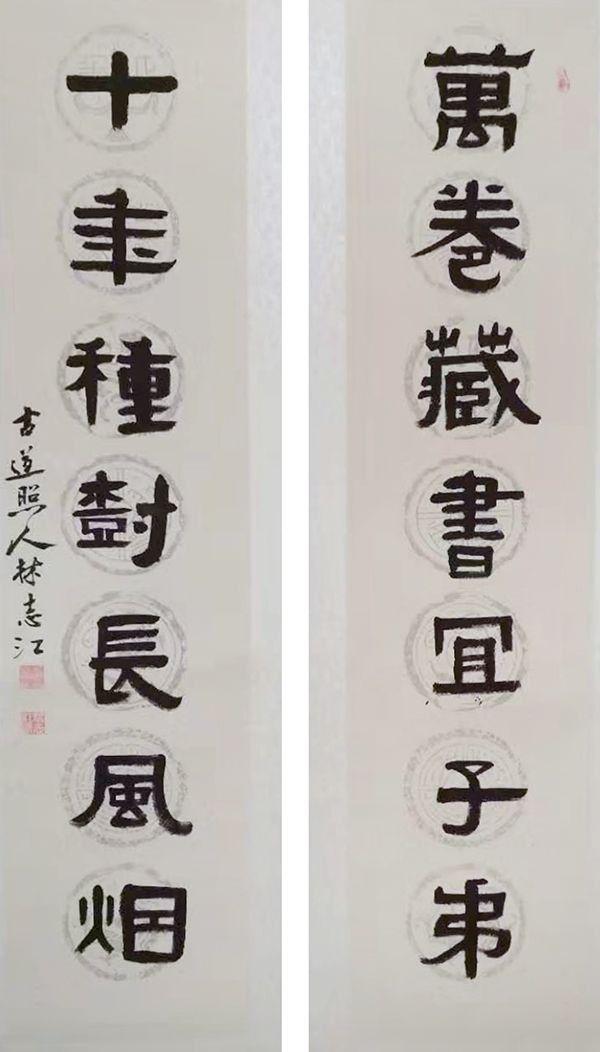 萬卷藏書宜子弟
十年種樹長風烟
古道照人林志江